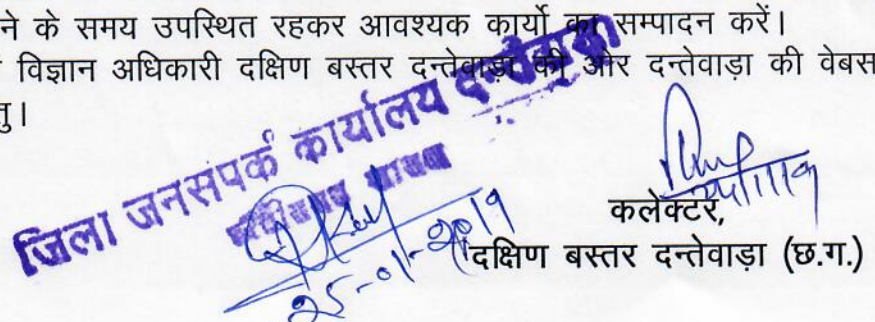 ने के समय उपस्थित रहकर आवश्यक कार्यो का सम्पादन करें।
विज्ञान अधिकारी दक्षिण बस्तर दन्तेवाड़ा की ओर दन्तेवाड़ा की वेबस
तु।
जिला जनसंपर्क कार्यालय दन्तेवाड़ा
छत्तीसगढ़ शासन
25-01-2019
कलेक्टर,
दक्षिण बस्तर दन्तेवाड़ा (छ.ग.)